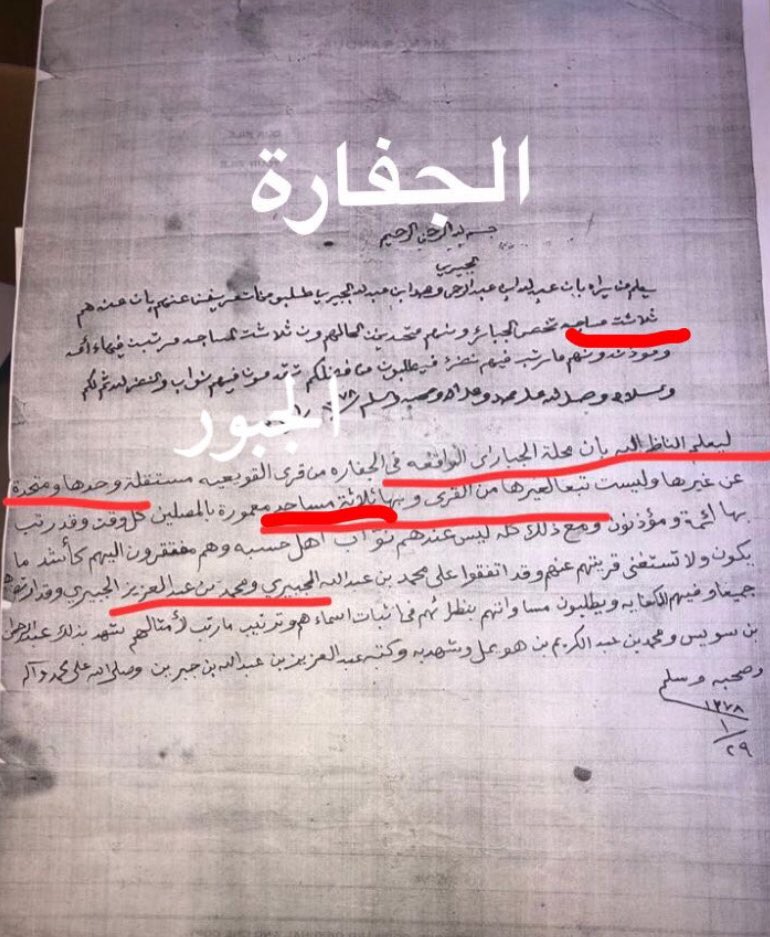 الجفارة
بسم الله الرحمن الرحيم
الجبيري
يعلم من يراه بان عبد الله ابن عبد الرحمن وحمد ابن عبد الله الجبيري طلبو منا تعريفن عنهم بان عندهم
ثلاثت مساجد تخص الجبائر ونهم متحدين الحالهم ون ثلاثت المساجد مرتبن فيها ائمه
وموذنن ونهم ما رتب فيهم فيطلبون من فضلكم فيهم نواب
والسلام وصل الله على محمد وعلى اله وصحبه وسلم
الجبور
ليعلم الناظر اليه بان محلة الجبارا الواقعه في الجفاره من قرى القويعيه مستقلة وحدها ومنحدة
عن غيرها وليست تبعا لغيرها من القرى وبها ثلاثة مساجد معمورة بالمصلين كل وقت وقد رتب
بها ائمة ومؤذنون ومع ذلك كله ليس عندهم نواب اهل حسبه وهم مفتقرون اليهم كأشد ما
يكون ولا تستغنى قريتهم عنهم وقد اتفقوا على محمد بن عبد الله الجبيري ومحمد بن عبد العزيز الجبيري وقد
جميعا وفيهم الكفايه ويطلبون مساوانهم بنظرائهم في اثبات اسماءهم وترتيب ما رتب لأمثالهم شهد بذلك عبد الرحمن
بن سويس ومحمد بن عبد الكريم بن هويمل وشهد به وكتبه عبد العزيز بن عبد الله بن جبرين وصلى الله على محمد وآله
وصحبه وسلم
١٣٧٨
١
٢٩